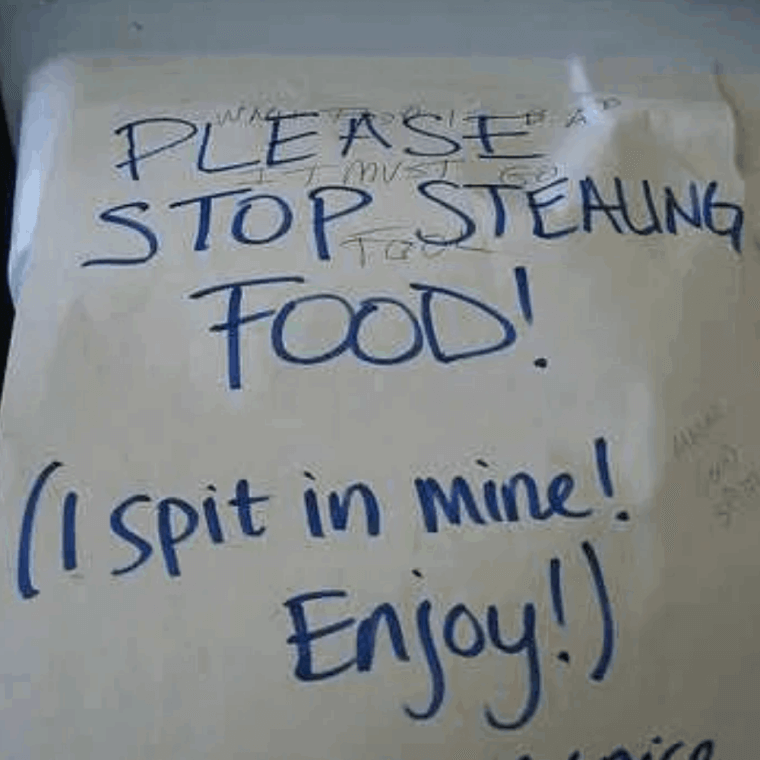 PLEASE
IT MUST GO
STOP STEALING
FOOD!
(I spit in mine!
Enjoy!)